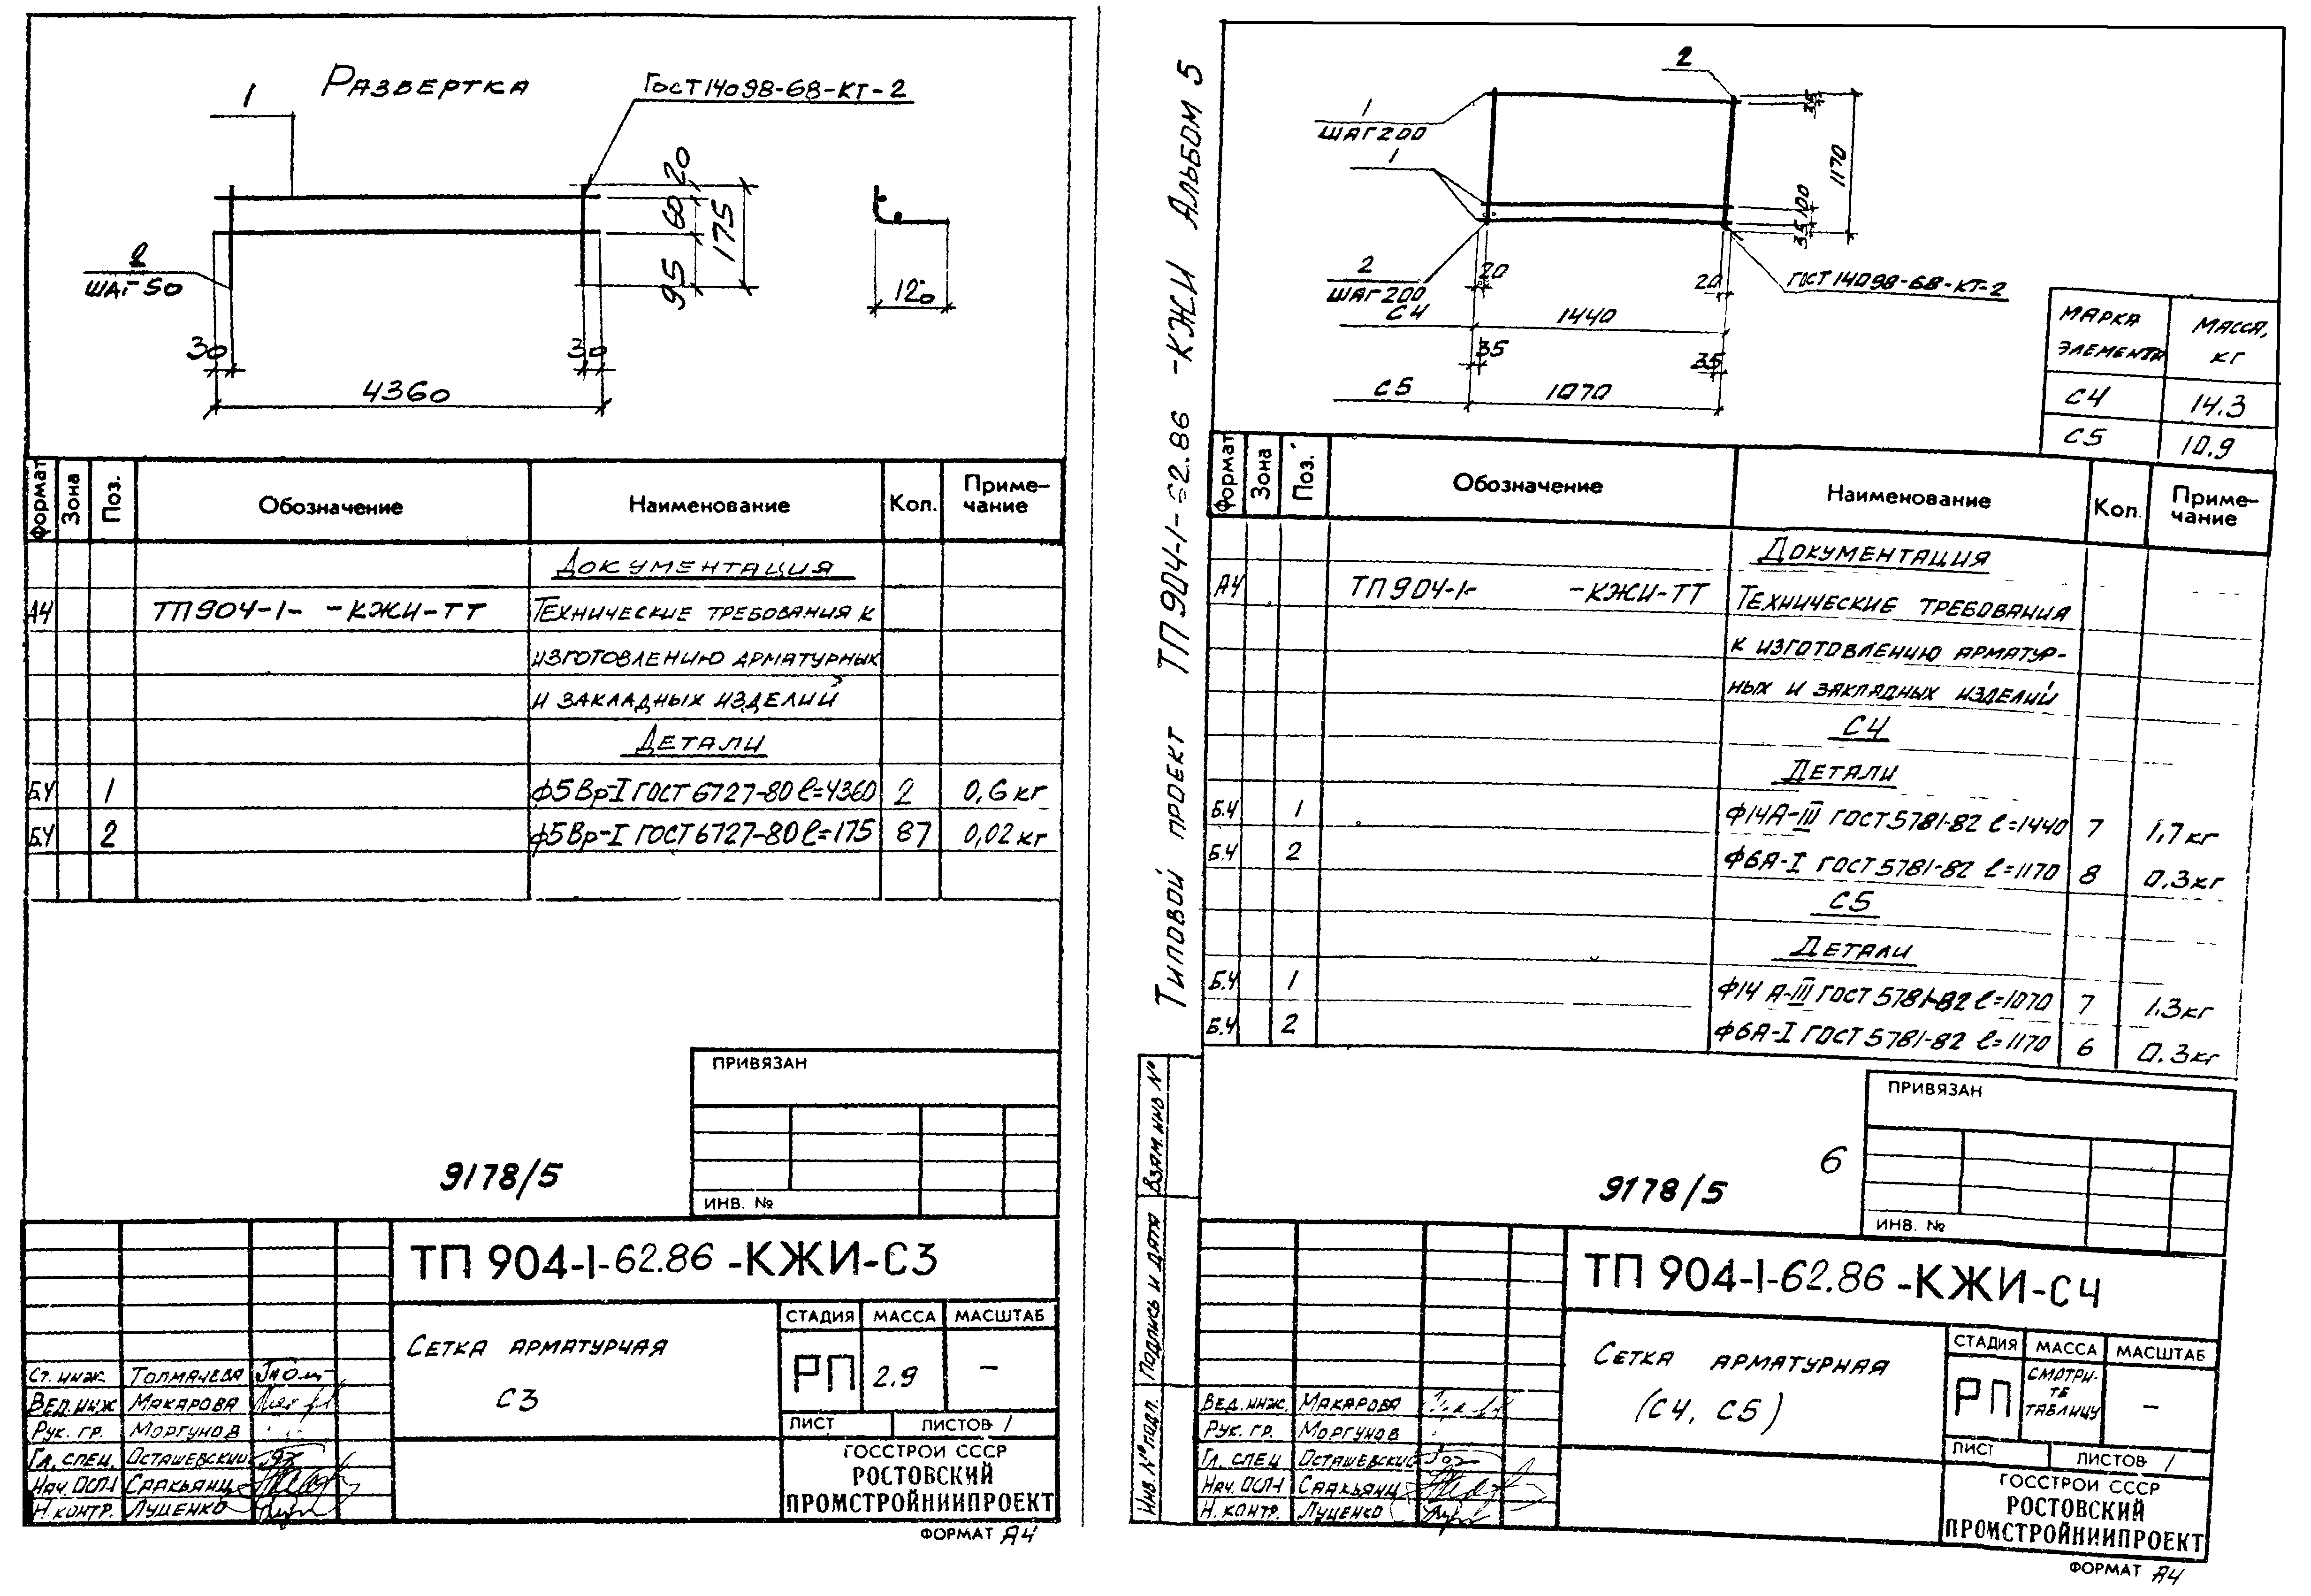 Развертка
1
ГОСТ 14098-68-КТ-2
20
60
175
95
2
ШАГ 50
30
30
4360
120
Формат Зона Поз. Обозначение Наименование Кол. Приме-чание
Документация
А4 ТП904-1- -КЖИ-ТТ Технические требования к
изготовлению арматурных
и закладных изделий
Детали
Б.Ч 1 ф5Вр-I ГОСТ 6727-80 ℓ=4360 2 0,6 кг
Б.Ч 2 ф5Вр-I ГОСТ 6727-80 ℓ=175 87 0,02 кг
ПРИВЯЗАН
ИНВ. №
9178/5
ТП 904-1-62.86-КЖИ-С3
Сетка арматурная
С3
СТАДИЯ МАССА МАСШТАБ
РП 2.9 –
ЛИСТ ЛИСТОВ 1
ГОССТРОЙ СССР
РОСТОВСКИЙ
ПРОМСТРОЙНИИПРОЕКТ
Ст. инж. Толмачева
Вед. инж Макарова
Рук. гр. Моргунов
Гл. спец. Осташевский
Нач. ОСП-1 Саакьянц
Н. контр. Луценко
ФОРМАТ А4
Типовой проект ТП 904-1-62.86 -КЖИ Альбом 5
2
1
ШАГ 200
1
35
1170
100
35
2
ШАГ 200
20
20
ГОСТ 14098-68-КТ-2
С4 1440
35
35
С5 1070
МАРКА ЭЛЕМЕНТА МАССА, КГ
С4 14.3
С5 10.9
Формат Зона Поз. Обозначение Наименование Кол. Приме-чание
Документация
А4 ТП904-1- -КЖИ-ТТ Технические требования
к изготовлению арматур-
ных и закладных изделий
С4
Детали
Б.Ч 1 ф14А-III ГОСТ 5781-82 ℓ=1440 7 1,7 кг
Б.Ч 2 ф6А-I ГОСТ 5781-82 ℓ=1170 8 0,3 кг
С5
Детали
Б.Ч 1 ф14 А-III ГОСТ 5781-82 ℓ=1070 7 1.3 кг
Б.Ч 2 ф6А-I ГОСТ 5781-82 ℓ=1170 6 0.3 кг
ПРИВЯЗАН
ИНВ. №
6
9178/5
Взам. инв №
Подпись и дата
Инв. № подл.
ТП 904-1-62.86-КЖИ-С4
Сетка арматурная
(С4, С5)
СТАДИЯ МАССА МАСШТАБ
РП СМОТРИ-ТЕ ТАБЛИЦУ –
ЛИСТ ЛИСТОВ 1
ГОССТРОЙ СССР
РОСТОВСКИЙ
ПРОМСТРОЙНИИПРОЕКТ
Вед. инж. Макарова
Рук. гр. Моргунов
Гл. спец Осташевский
Нач. ОСП-1 Саакьянц
Н. контр. Луценко
ФОРМАТ А4